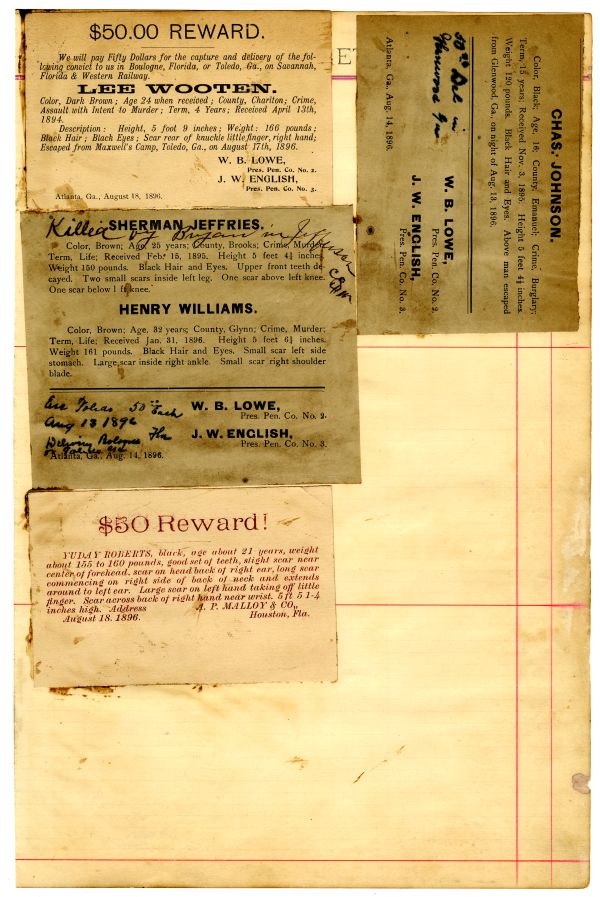 $50.00 REWARD.
We will pay Fifty Dollars for the capture and delivery of the fol-
lowing convict to us in Boulogne, Florida, or Toledo, Ga., on Savannah,
Florida & Western Railway.
LEE WOOTEN.
Color, Dark Brown; Age 24 when received; County, Charlton; Crime,
Assault with Intent to Murder; Term, 4 Years; Received April 13th,
1894.
Description: Height, 5 foot 9 inches; Weight: 166 pounds;
Black Hair; Black Eyes; Scar rear of knuckle little finger, right hand;
Escaped from Maxwell's Camp, Toledo, Ga., on August 17th, 1896.
W. B. LOWE,
Pres. Pen. Co. No. 2.
J. W. ENGLISH,
Pres. Pen. Co. No. 3.
Atlanta, Ga., August 18, 1896.
ET
CHAS. JOHNSON.
Color, Black; Age, 16; County, Emanuel; Crime, Burglary;
Term, 15 years; Received Nov. 3, 1895; Height 5 feet 4½ inches.
Weight 120 pounds. Black Hair and Eyes. Above man escaped
from Glenwood, Ga., on night of Aug. 13, 1896.
W. B. LOWE,
Pres. Pen. Co. No. 2.
J. W. ENGLISH,
Pres. Pen. Co. No. 3.
50.00 Del in
Glenwood Ga
Atlanta, Ga., Aug. 14, 1896.
Killed by Bryan in Jefferson
SHERMAN JEFFRIES.
Color, Brown; Age 25 years; County, Brooks; Crime, Murder;
Term, Life; Received Feb. 15, 1895. Height 5 feet 4½ inches.
Weight 150 pounds. Black Hair and Eyes. Upper front teeth de-
cayed. Two small scars inside left leg. One scar above left knee.
One scar below left knee.
HENRY WILLIAMS.
Color, Brown; Age, 32 years; County, Glynn; Crime, Murder;
Term, Life; Received Jan. 31, 1896. Height 5 feet 6½ inches.
Weight 161 pounds. Black Hair and Eyes. Small scar left side
stomach. Large scar inside right ankle. Small scar right shoulder
blade.
Esc Toledo 50.00 Each
Aug 13 1896
W. B. LOWE,
Pres. Pen. Co. No. 2.
J. W. ENGLISH,
Pres. Pen. Co. No. 3.
Atlanta, Ga., Aug. 14, 1896.
$50 Reward!
YUDAY ROBERTS, black, age about 21 years, weight
about 155 to 160 pounds, good set of teeth, slight scar near
center of forehead, scar on head back of right ear, long scar
commencing on right side of back of neck and extends
around to left ear. Large scar on left hand taking off little
finger. Scar across back of right hand near wrist. 5 ft 5 1-4
inches high. Address A. P. MALLOY & CO.,
August 18. 1896. Houston, Fla.